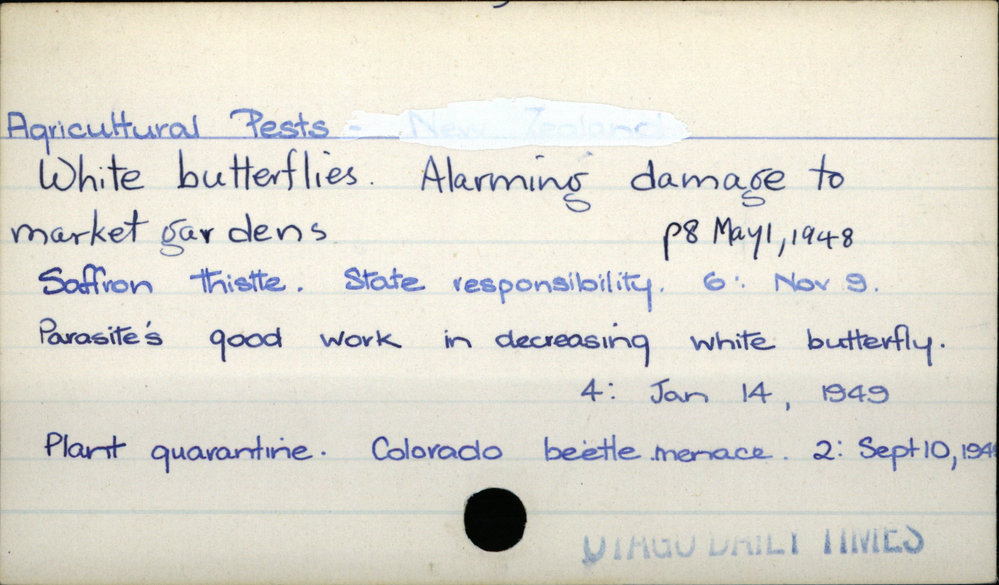 Agricultural Pests - New Zealand
White butterflies. Alarming damage to
market gardens p8 May 1, 1948
Saffron thistle. State responsibility. 6: Nov 9.
Parasite's good work in decreasing white butterfly.
4: Jan 14, 1949
Plant quarantine. Colorado beetle menace. 2: Sept 10,
OTAGO DAILY TIMES